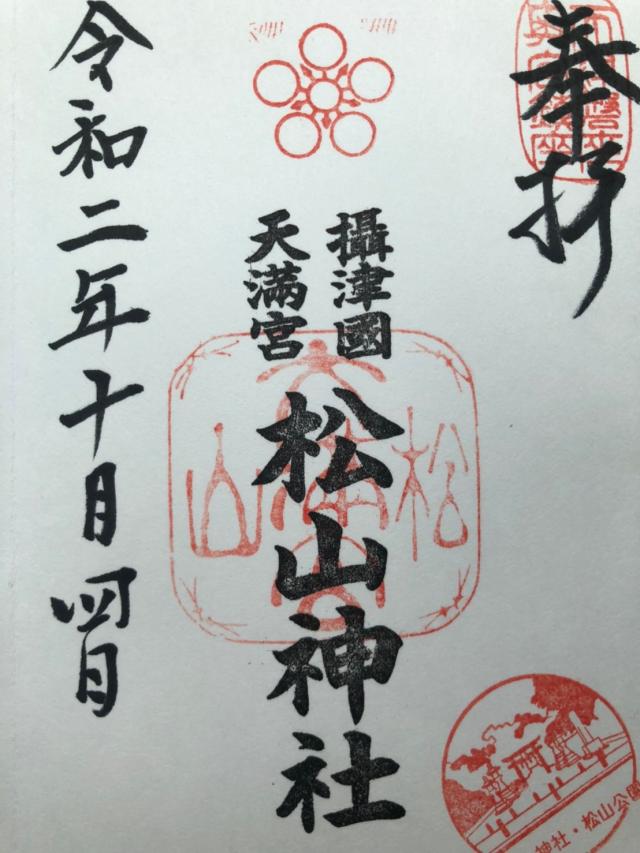 奉拝
攝津國
天満宮
松山神社
令和二年十月四日
松山
神社・松山公園